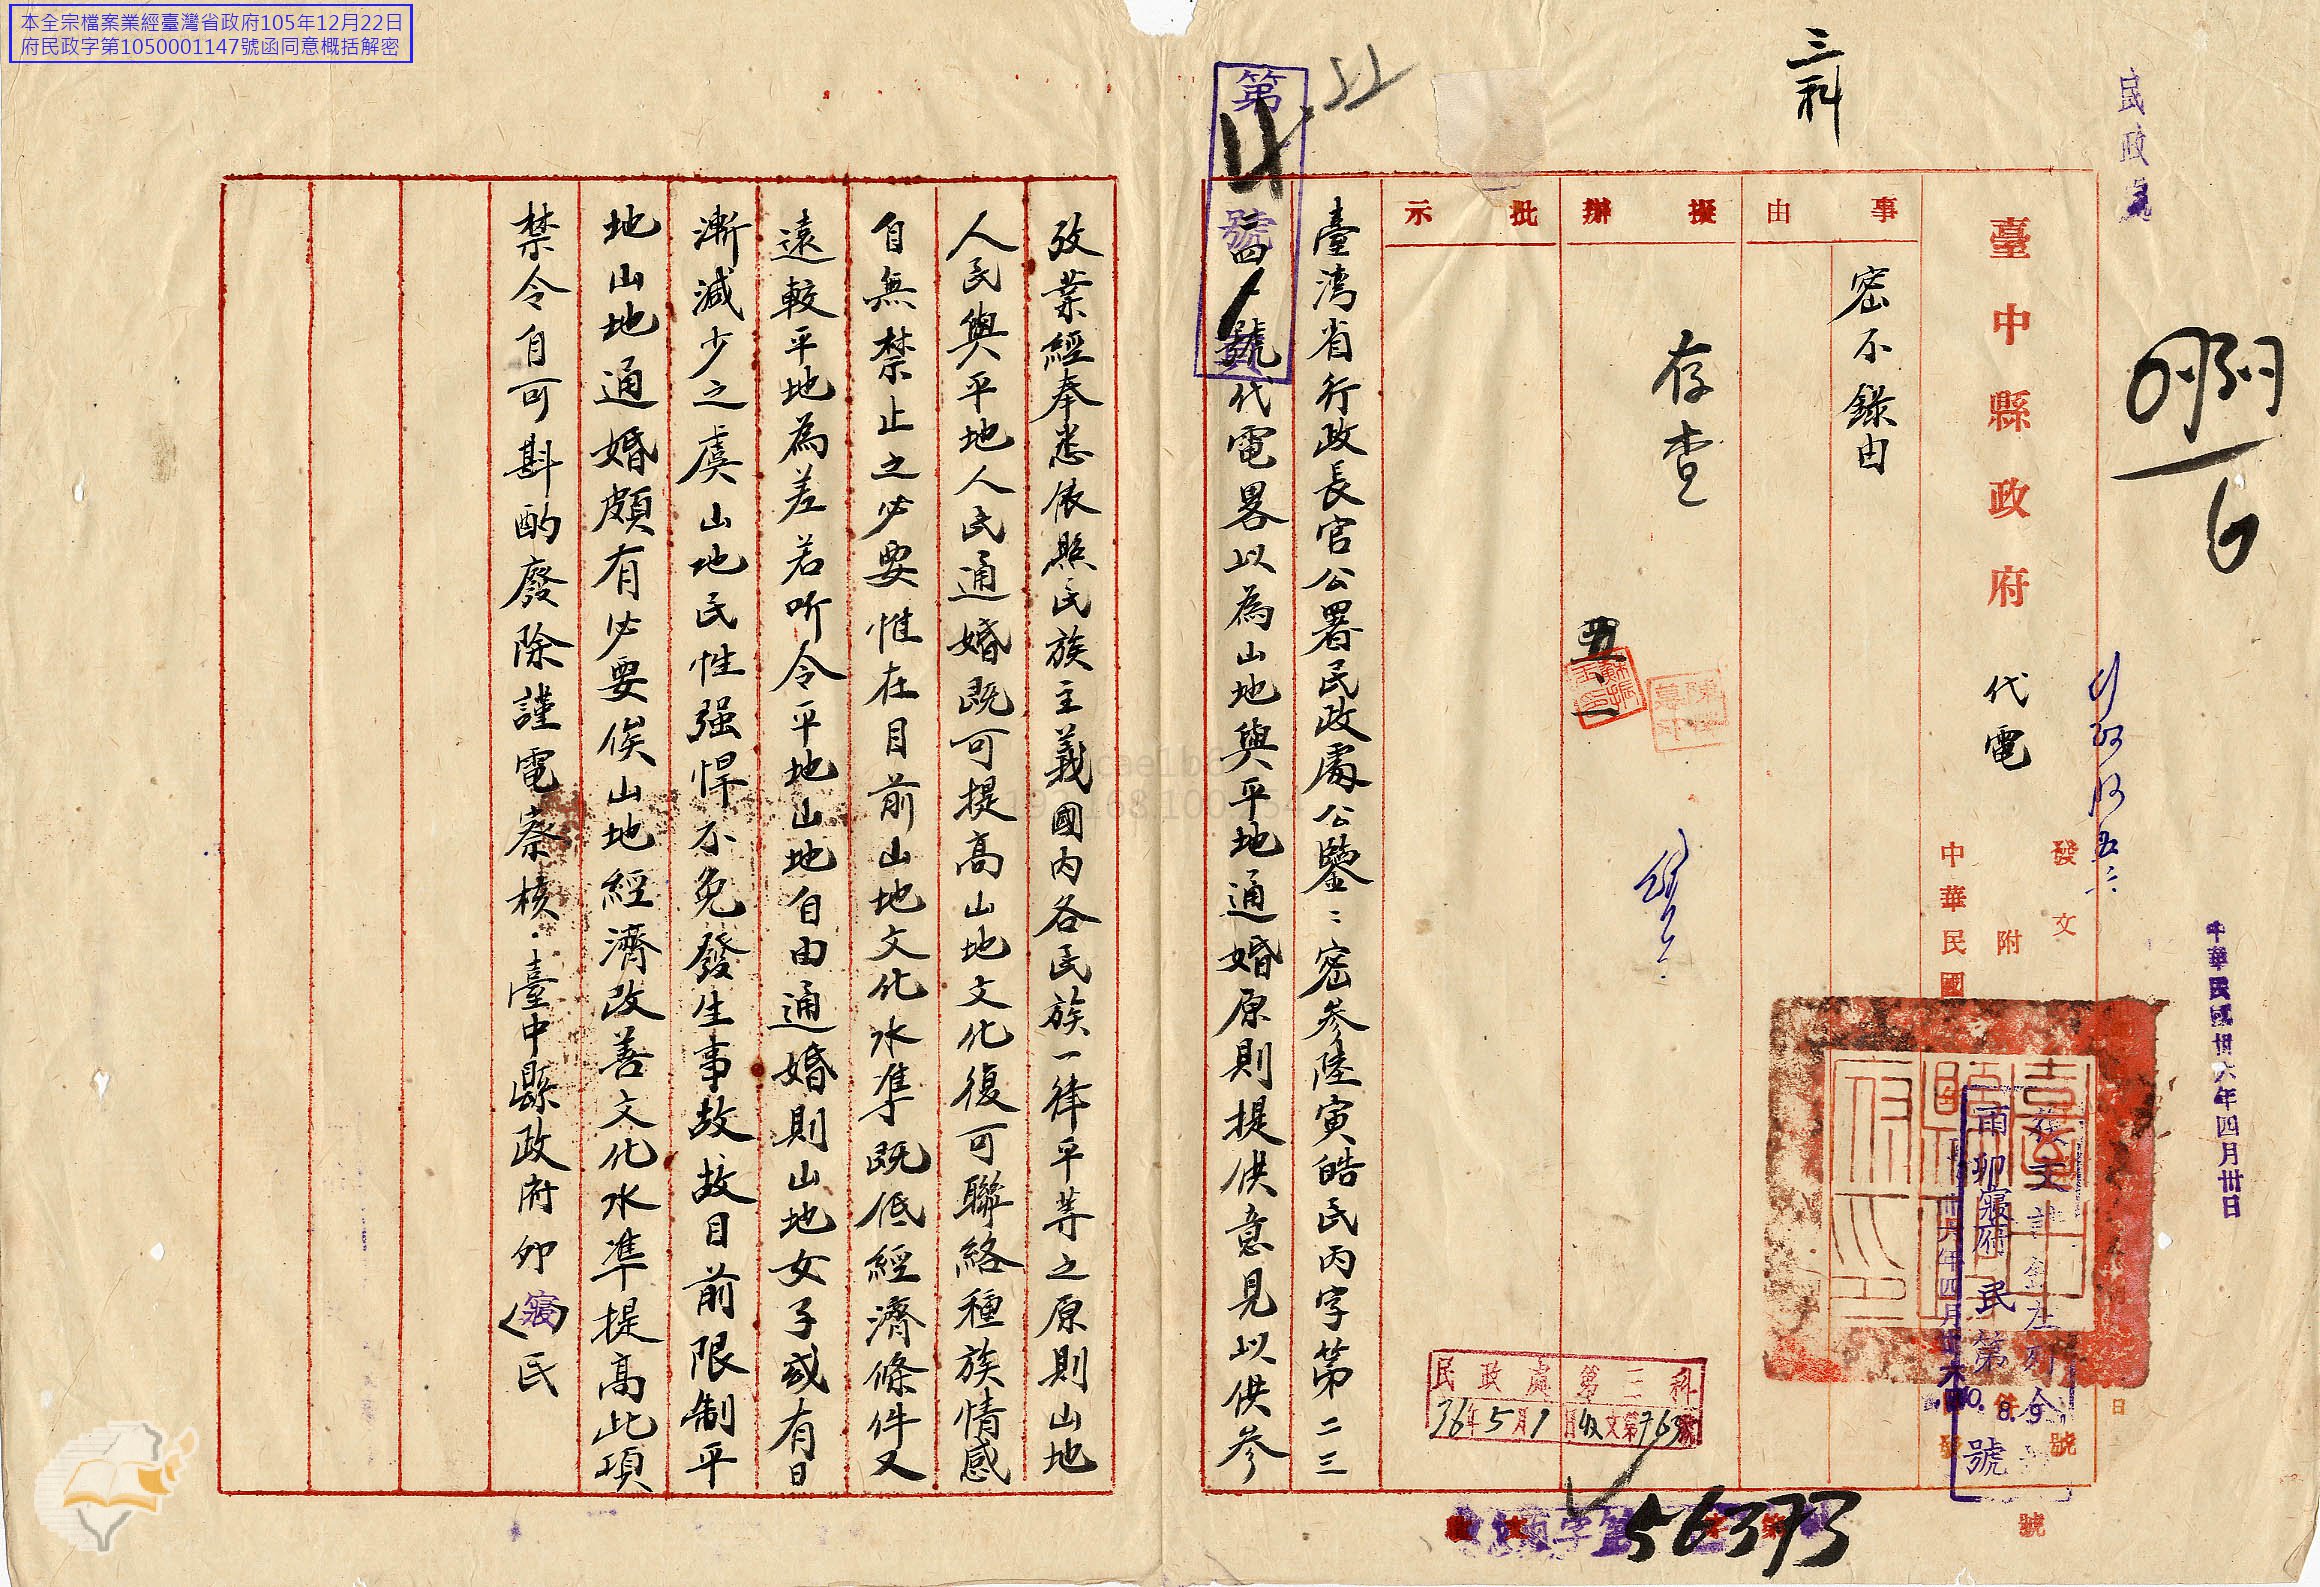 本全宗檔案業經臺灣省政府105年12月22日
府民政字第1050001147號函同意概括解密
民政處
三科
臺中縣政府 代電
發文
附
號
中華民國卅六年四月卅日
中華民國卅六年四月廿六日
事由
密不錄由
擬辦
存查
批示
臺湾省行政長官公署民政處公鑒：密參陸寅皓民丙字第二三
二四一號代電畧以為山地與平地通婚原則提供意見以供參
攷業經奉悉依照民族主義國內各民族一律平等之原則山地
人民與平地人民通婚既可提高山地文化復可聯絡種族情感
自無禁止之必要惟在目前山地文化水準既低經濟條件又
遠較平地為差若听令平地山地自由通婚則山地女子或有日
漸減少之虞山地民性强悍不免發生事故故目前限制平
地山地通婚頗有必要俟山地經濟改善文化水準提高此項
禁令自可斟酌廢除謹電察核．臺中縣政府卯（寢）民
兩卯寢府民第
號
民政處第三科
36年5月1日收文第763號
56373